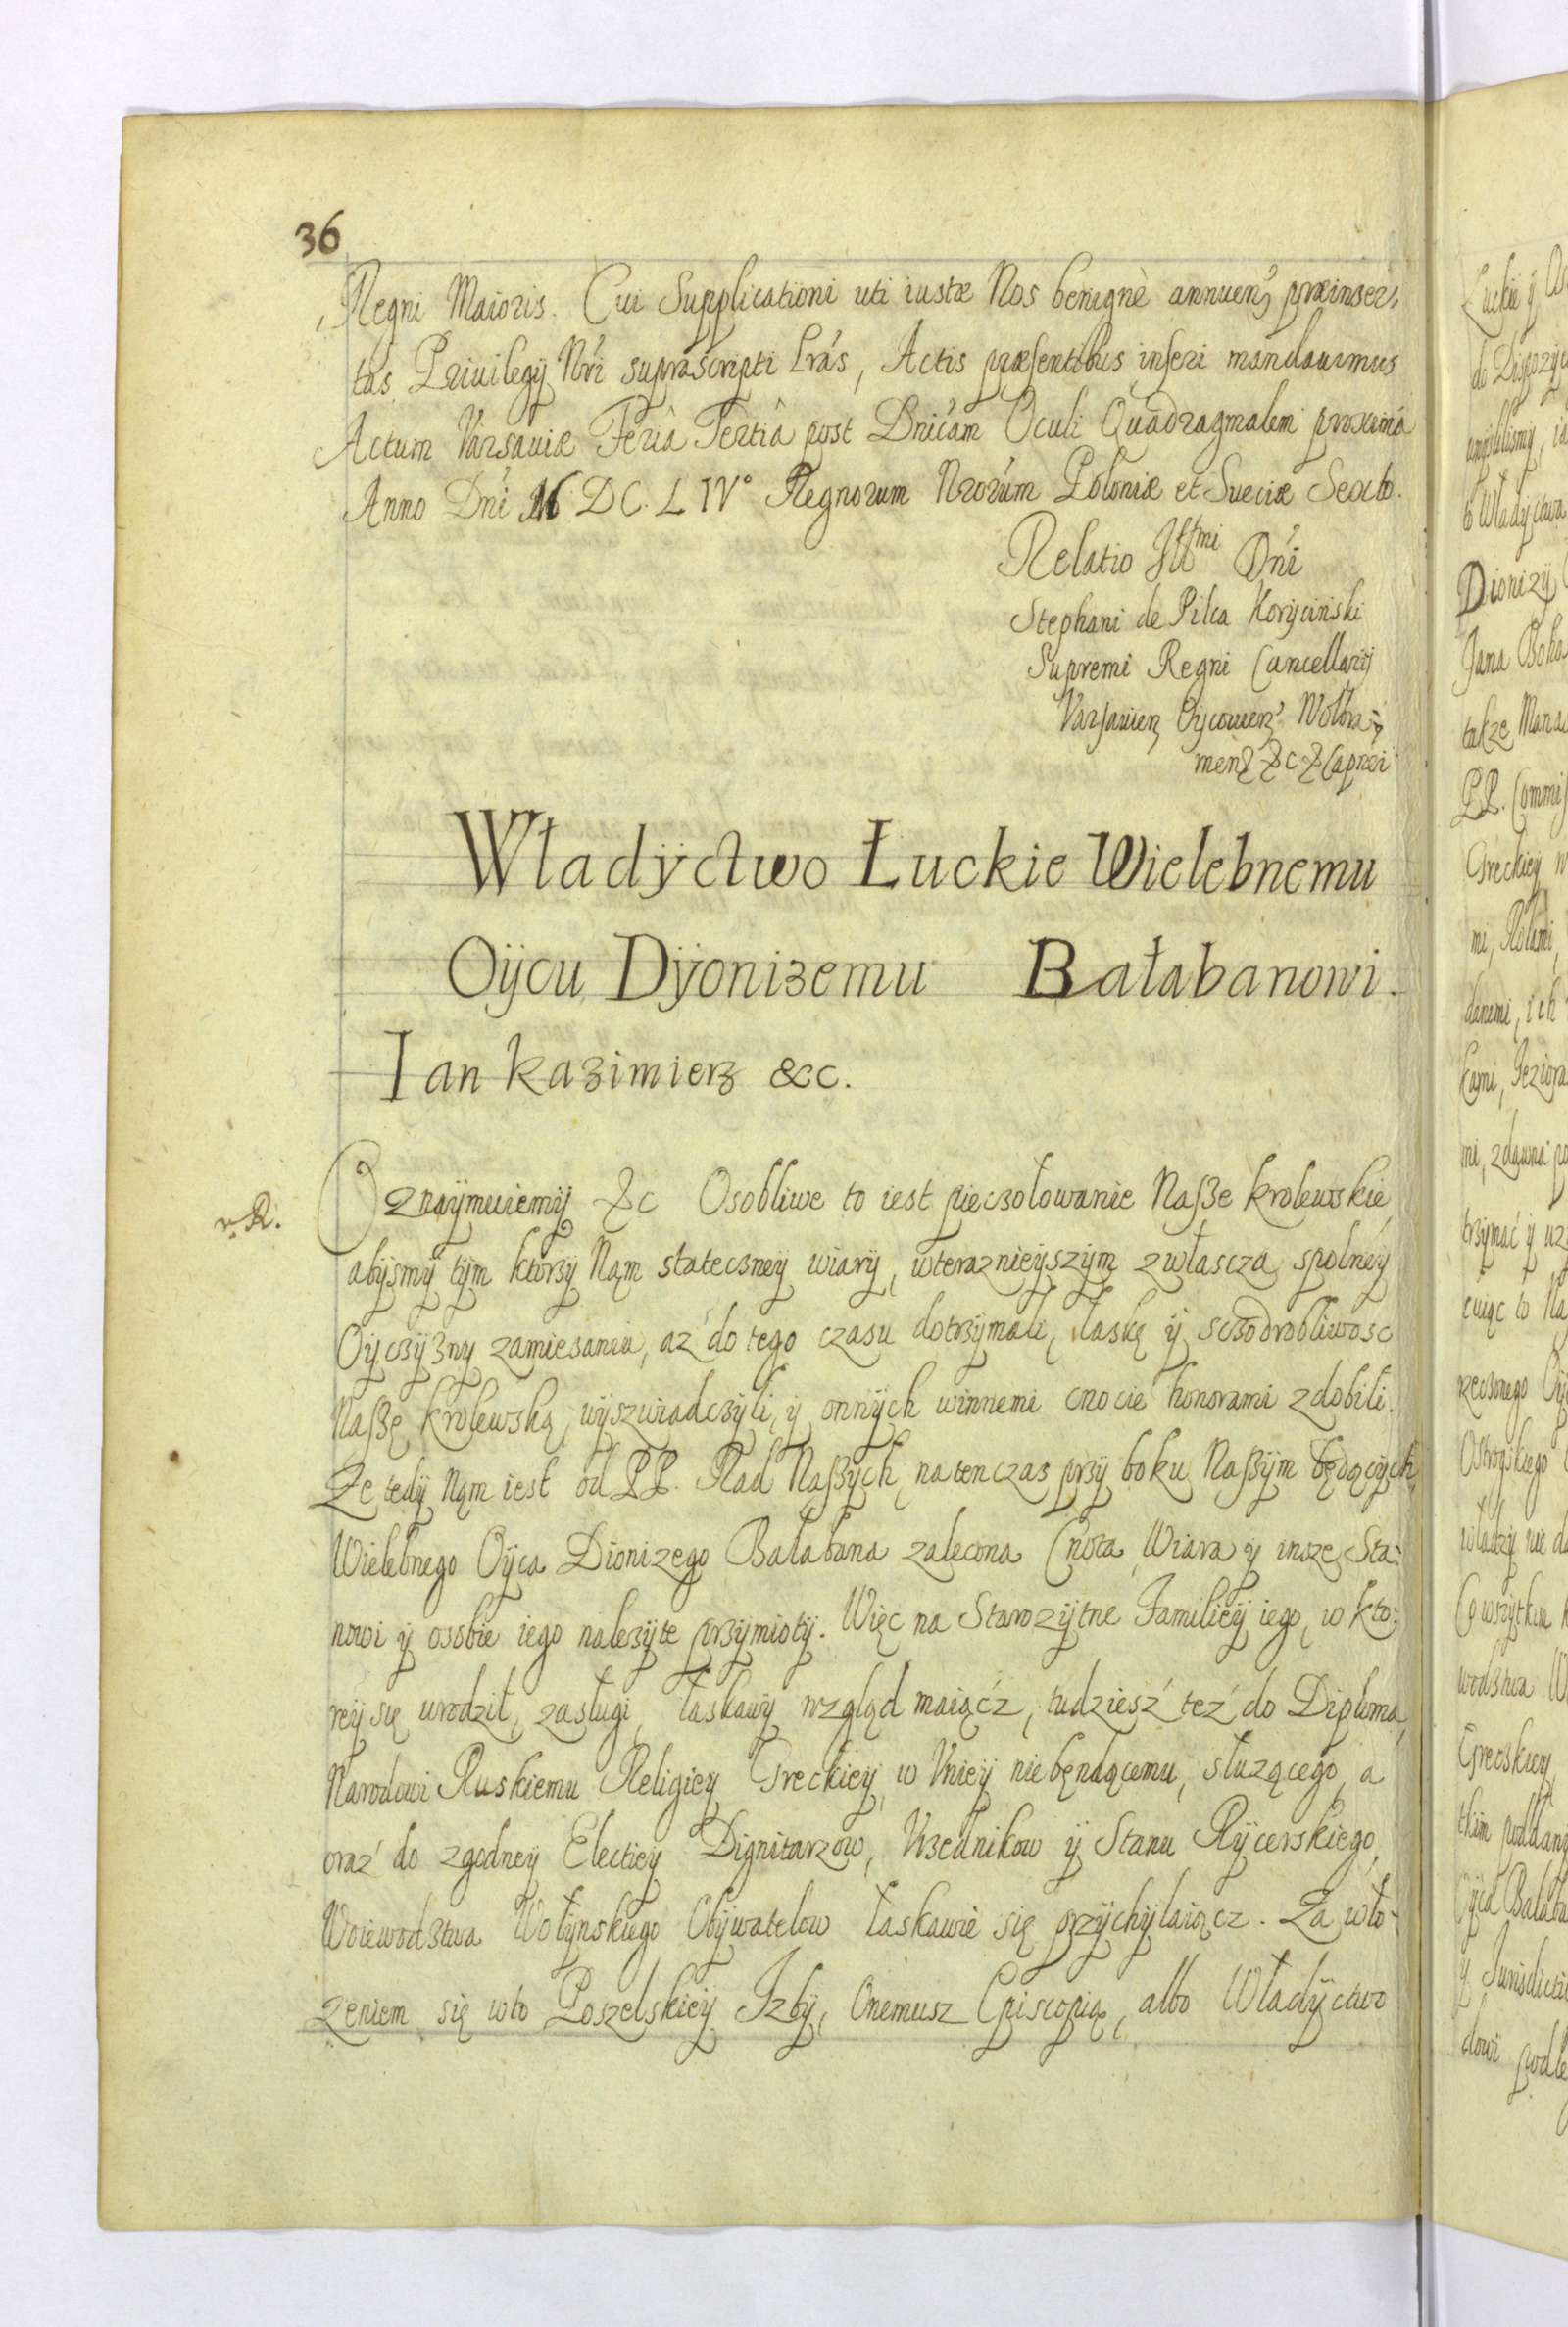 36
Regni Maioris. Cui Supplicationi uti iustæ Nos benignè annuen præinser,
tas Priuilegÿ Nri suprascripti Lras, Actis præsentibus inseri mandauimus
Actum Varsauiæ Feriâ Tertiâ post Dnicam Oculi Quadragmalem proximâ
Anno Dni M DC. L IV° Regnorum Nrorum Poloniæ et Sueciæ Sexto.
Relatio Illmi Dni
Stephani de Pilca Korÿciński
Supremi Regni Cancellarÿ
Varsauien Oÿcouien Wolbra-
men &c & Capnei
Władÿctwo Łuckie Wielebnemu
Oÿcu Dÿonizemu Bałabanowi.
Ian Kazimierz &c.
r. R.
Oznaÿmuiemÿ &c Osobliwe to iest pieczołowanie Nasze krolewskie
abÿsmÿ tÿm ktorzÿ Nąm stateczneÿ wiarÿ, wteraznieÿszÿm zwłascza spolneÿ
Oÿczÿznÿ zamiesaniu, aż do tego czasu dotrzÿmali, łaskę ÿ sczodrobliwosc
Naszę krolewską wÿszwiadczÿli, ÿ onnÿch winnemi cnocie honorami zdobili.
Ze tedÿ Nąm iest od PP. Rad Naszÿch, natenczas przÿ boku Naszÿm będącÿch,
Wielebnego Oÿca Dionizego Bałabana zalecona Cnota, Wiara ÿ insze Sta-
nowi ÿ osobie iego należÿte przÿmiotÿ. Więc na Starozÿtne Familieÿ iego, w kto-
reÿ się urodził, zasługi, łaskawÿ wzgląd maiąćz, tudziesz też do Diploma,
Narodowi Ruskiemu Religieÿ Greckieÿ, w Vnieÿ niebęndącemu, służącego, a
oraz do zgodneÿ Electieÿ Dignitarzow, Vrzednikow ÿ Stanu Rÿcerskiego,
Woiewodztwa Wołÿnskiego Obÿwatelow łaskawie się przÿchÿlaiącz. Za wło-
żeniem się wto Poszelskieÿ Izbÿ, Onemusz Episcopią, albo Władÿctwo